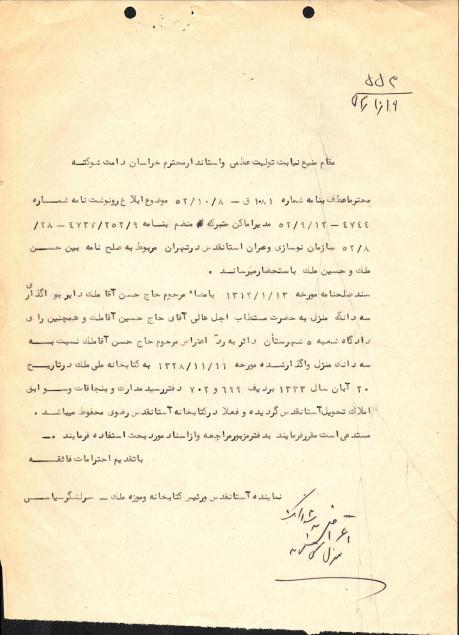 ۵۵۳
مقام منیع نیابت تولیت عظمی واستاندارمحترم خراسان دامت شوکته
محترماعطف بنامه شماره ۱۰۸۱ ق - ۵۲/۱۰/۸ موضوع ابلاغ رونوشت نامه شماره
۴۷۴۴ - ۵۲/۹/۱۲ مدیراماکن متبرکه منضم بنامه ۴۷۳۷/۲۵۲/۹ - ۲۸/
۵۲/۸ سازمان نوسازی وعمران استانقدس درتهران مربوط به صلح نامه بین حسن
ملک و حسین ملک باستحضارمیرساند .
سندصلحنامه مورخه ۱۳۱۲/۱/۱۳ بامضاء مرحوم حاج حسن آقا ملک دایر بواگذاری
سه دانگ منزل به حضرت مستطاب اجل عالی آقای حاج حسین آقاملک و همچنین رای
دادگاه شعبه ۵ شهرستان دائر به رد اعتراض مرحوم حاج حسن آقاملک نسبت به
سه دانگ منزل واگذارشده مورخه ۱۳۲۸/۱۱/۱۱ به کتابخانه ملی ملک درتاریخ
۲۰ آبان سال ۱۳۳۳ بردیف ۶۹۹ و ۷۰۲ دفتررسیدمدارک و بنجاقات وسوابق
املاک تحویل آستانقدس گردیده و فعلا درکتابخانه آستانقدس رضوی محفوظ میباشد .
مستدعی است مقررفرمایند بدفترمزبورمراجعه وازاسناد موردبحث استفاده فرمایند .-
باتقدیم احترامات فائقه
نماینده آستانقدس ورئیس کتابخانه وموزه ملک - سرلشگرسیاسی